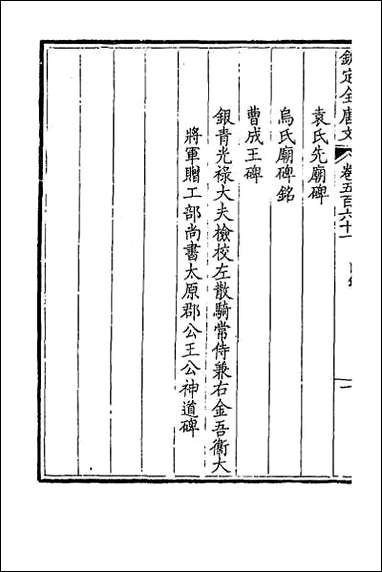 欽定全唐文 卷五百六十一 目錄 一
袁氏先廟碑
烏氏廟碑銘
曹成王碑
銀青光祿大夫檢校左散騎常侍兼右金吾衛大
將軍贈工部尚書太原郡公王公神道碑